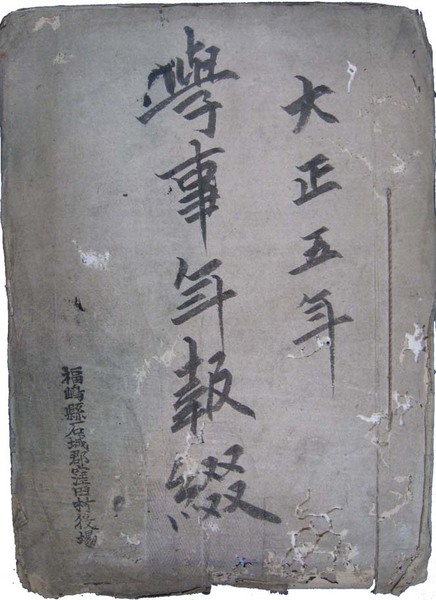 大正五年
學事年報綴
福嶋縣石城郡窪田村役場